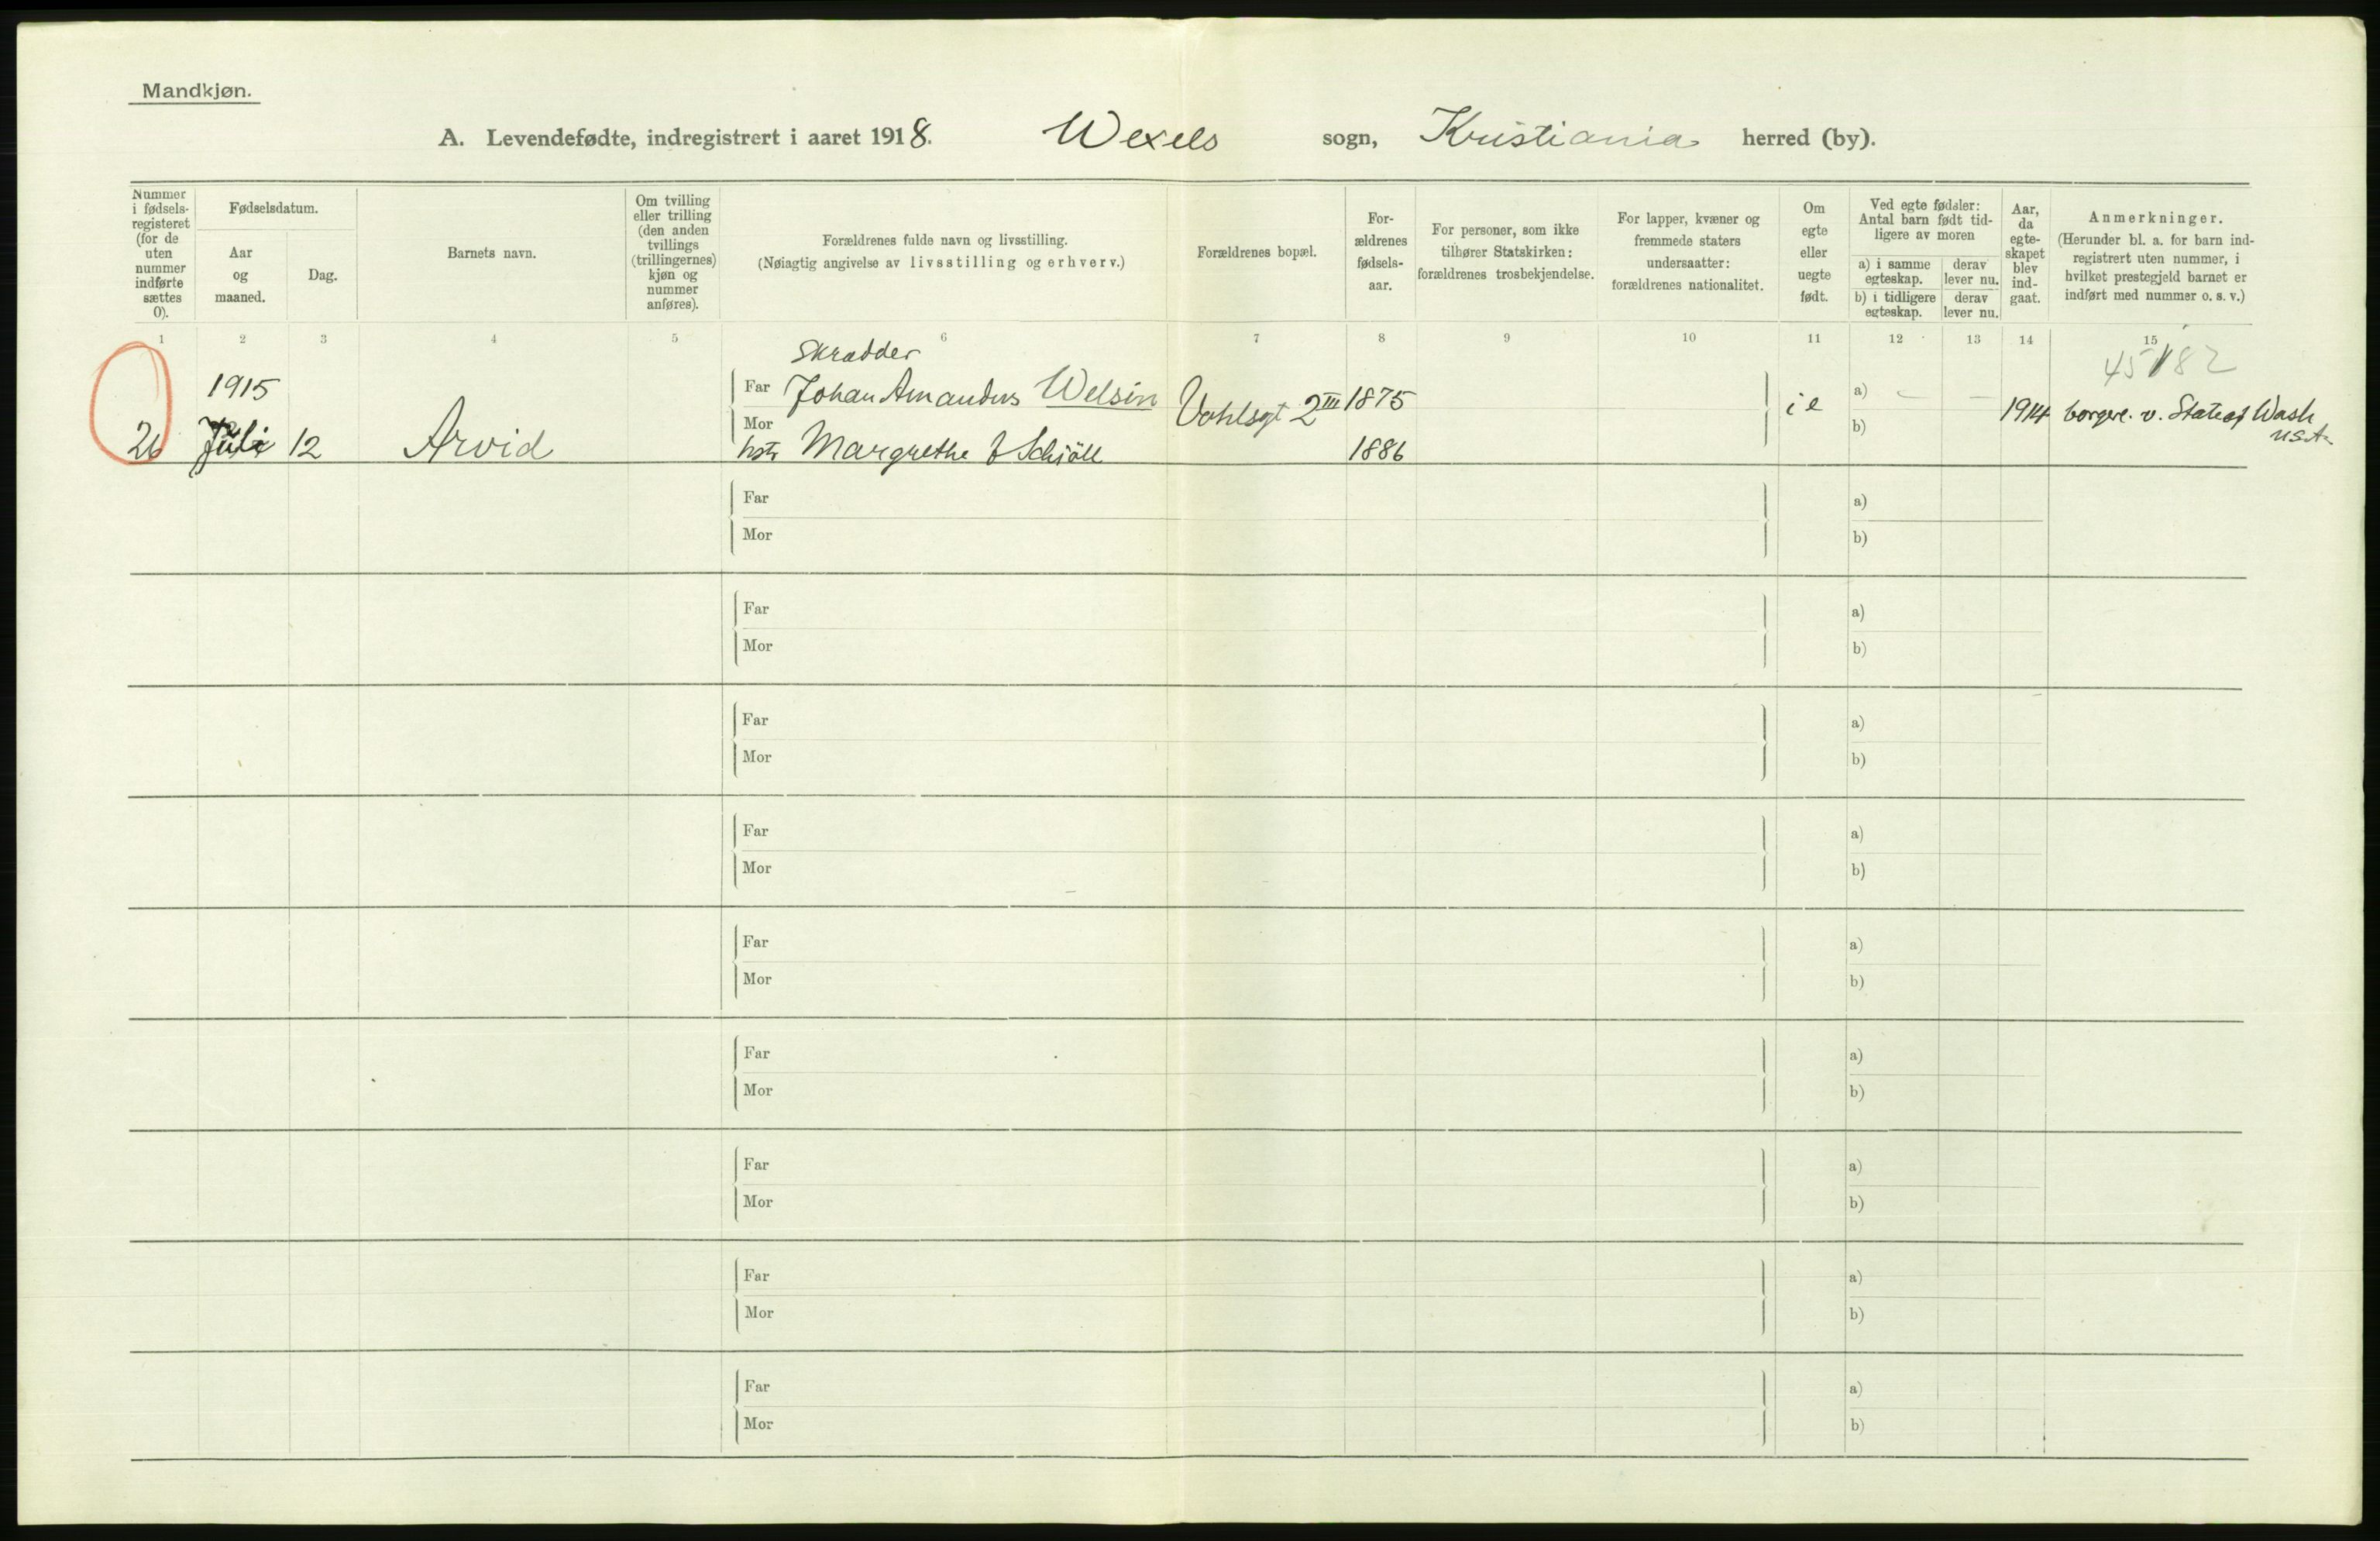 Mandkjøn.
A. Levendefødte, indregistrert i aaret 1918. Wexels sogn, Kristiania herred (by).
Nummer i fødsels-registeret (for de uten nummer indførte sættes 0).
Fødselsdatum.
Aar og maaned.
Dag.
Barnets navn.
Om tvilling eller trilling (den anden tvillings (trillingernes) kjøn og nummer anføres).
Forældrenes fulde navn og livsstilling.
(Nøiagtig angivelse av livsstilling og erhverv.)
Forældrenes bopæl.
For-ældrenes fødsels-aar.
For personer, som ikke tilhører Statskirken: forældrenes trosbekjendelse.
For lapper, kvæner og fremmede staters undersaatter: forældrenes nationalitet.
Om egte eller uegte født.
Ved egte fødsler: Antal barn født tid-ligere av moren
a) i samme egteskap.
derav lever nu.
b) i tidligere egteskap.
derav lever nu.
Aar, da egte-skapet blev ind-gaat.
Anmerkninger.
(Herunder bl. a. for barn ind-registrert uten nummer, i hvilket prestegjeld barnet er indført med nummer o. s. v.)
1 2 3 4 5 6 7 8 9 10 11 12 13 14 15
45182
Skrædder
1915 Far Johan Amandus Welsin Vahlsgt 2 III 1875 a) — —
26 Juli 12 Arvid i e 1914 borgerl. v. State of Wash
U.S.A.
Mor b)
hstr Margrethe f Schiöll 1886
Far a)
Mor b)
Far a)
Mor b)
Far a)
Mor b)
Far a)
Mor b)
Far a)
Mor b)
Far a)
Mor b)
Far a)
Mor b)
Far a)
Mor b)
Far a)
Mor b)